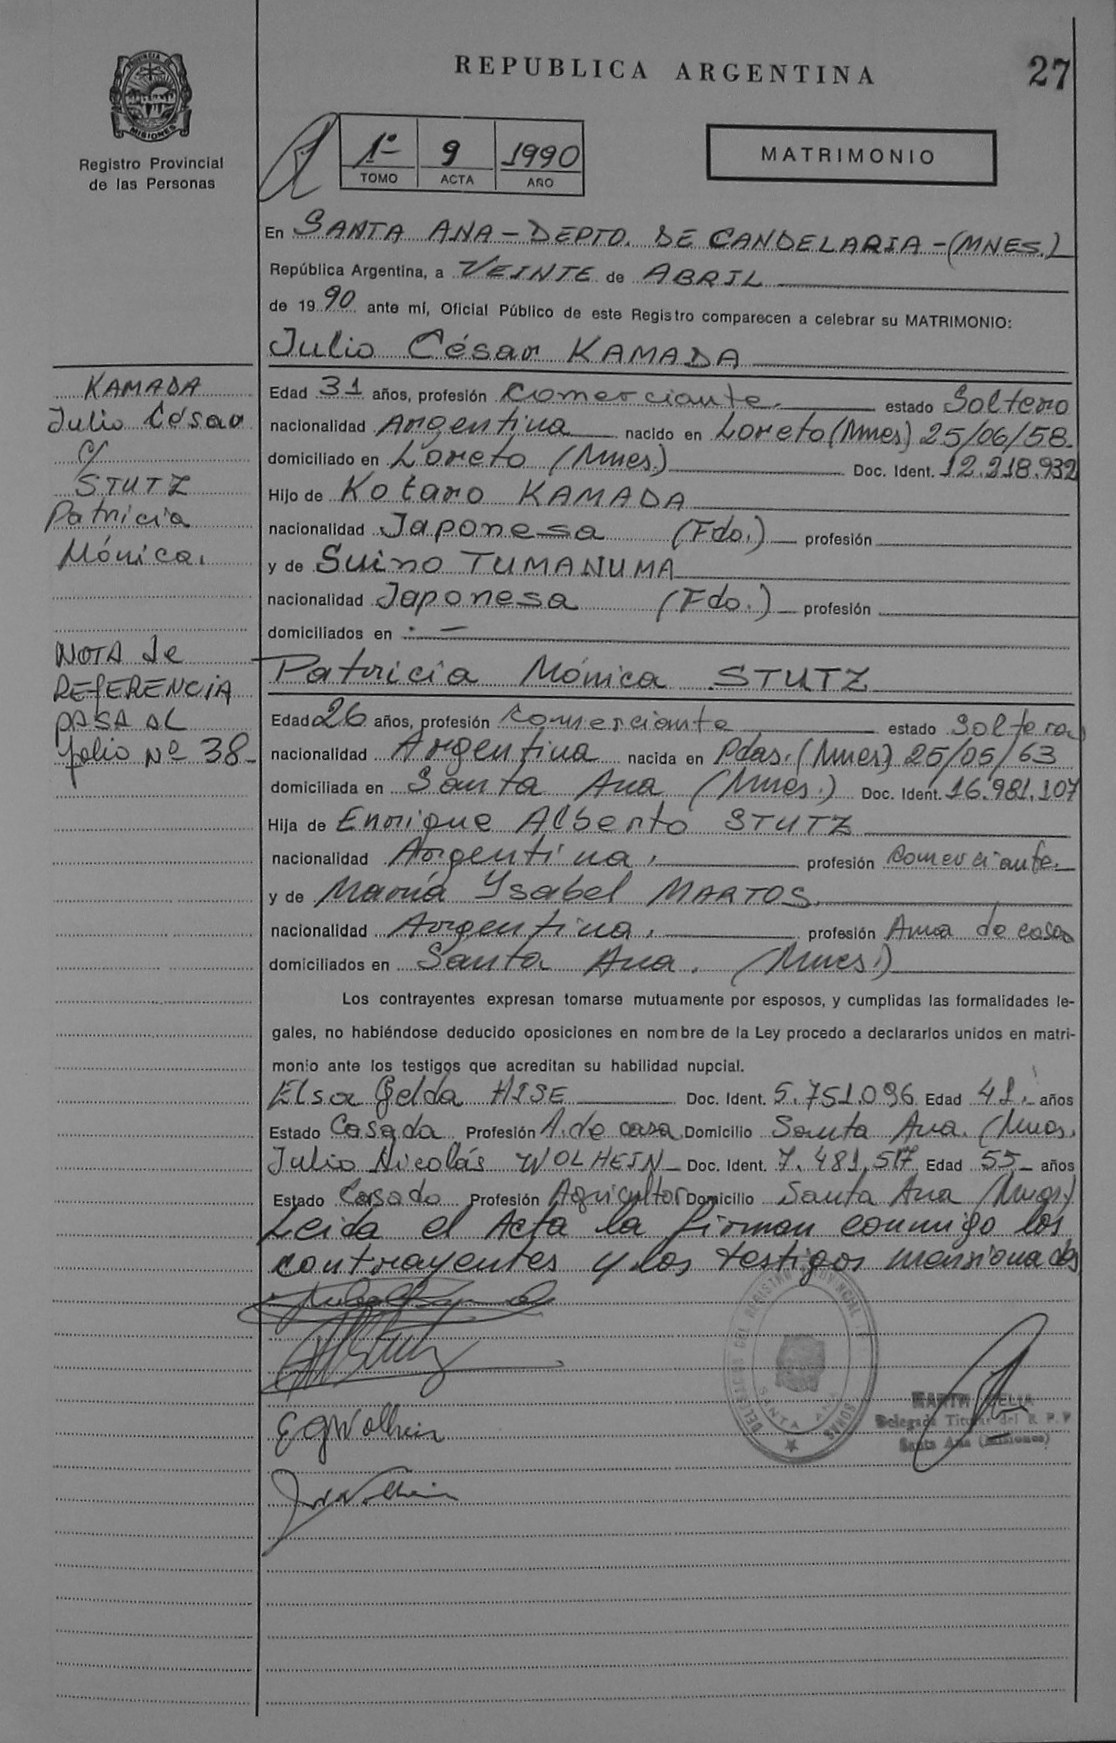 REPUBLICA ARGENTINA
27
PROVINCIA DE MISIONES
Registro Provincial
de las Personas
1º 9 1990
TOMO ACTA AÑO
MATRIMONIO
En SANTA ANA - DEPTO. DE CANDELARIA - (MNES.)
República Argentina, a VEINTE de ABRIL
de 1990 ante mí, Oficial Público de este Registro comparecen a celebrar su MATRIMONIO:
Julio César KAMADA
Edad 31 años, profesión Comerciante. estado Soltero
nacionalidad Argentina nacido en Loreto (Mnes) 25/06/58.
domiciliado en Loreto (Mnes.) Doc. Ident. 12.218.932
Hijo de Kotaro KAMADA
nacionalidad Japonesa (Fdo.) profesión
y de Suino TUMANUMA
nacionalidad Japonesa (Fdo.) profesión
domiciliados en . -
Patricia Mónica STUTZ
Edad 26 años, profesión Comerciante estado Soltera
nacionalidad Argentina nacida en Pdas. (Mnes) 25/05/63
domiciliada en Santa Ana (Mnes.) Doc. Ident. 16.981.107
Hija de Enrique Alberto STUTZ
nacionalidad Argentina. profesión Comerciante
y de María Ysabel MARTOS.
nacionalidad Argentina. profesión Ama de casa
domiciliados en Santa Ana. (Mnes.)
Los contrayentes expresan tomarse mutuamente por esposos, y cumplidas las formalidades le-
gales, no habiéndose deducido oposiciones en nombre de la Ley procedo a declararlos unidos en matri-
monio ante los testigos que acreditan su habilidad nupcial.
Elsa Gelda HISE Doc. Ident. 5.751.096 Edad 41. años
Estado Casada Profesión A. de casa Domicilio Santa Ana. (Mnes.
Julio Nicolás WOLHEIN Doc. Ident. 7.481.517 Edad 55 años
Estado Casado Profesión Agricultor Domicilio Santa Ana (Mnes.)
Leida el Acta la firman conmigo los
contrayentes y los testigos mensionados
EGWolhein
SANTA ANA
Delegada Titular del R. P. P
Santa Ana (Misiones)
KAMADA
Julio César
c/
STUTZ
Patricia
Mónica.
NOTA de
REFERENCIA
PASA AL
folio Nº 38-